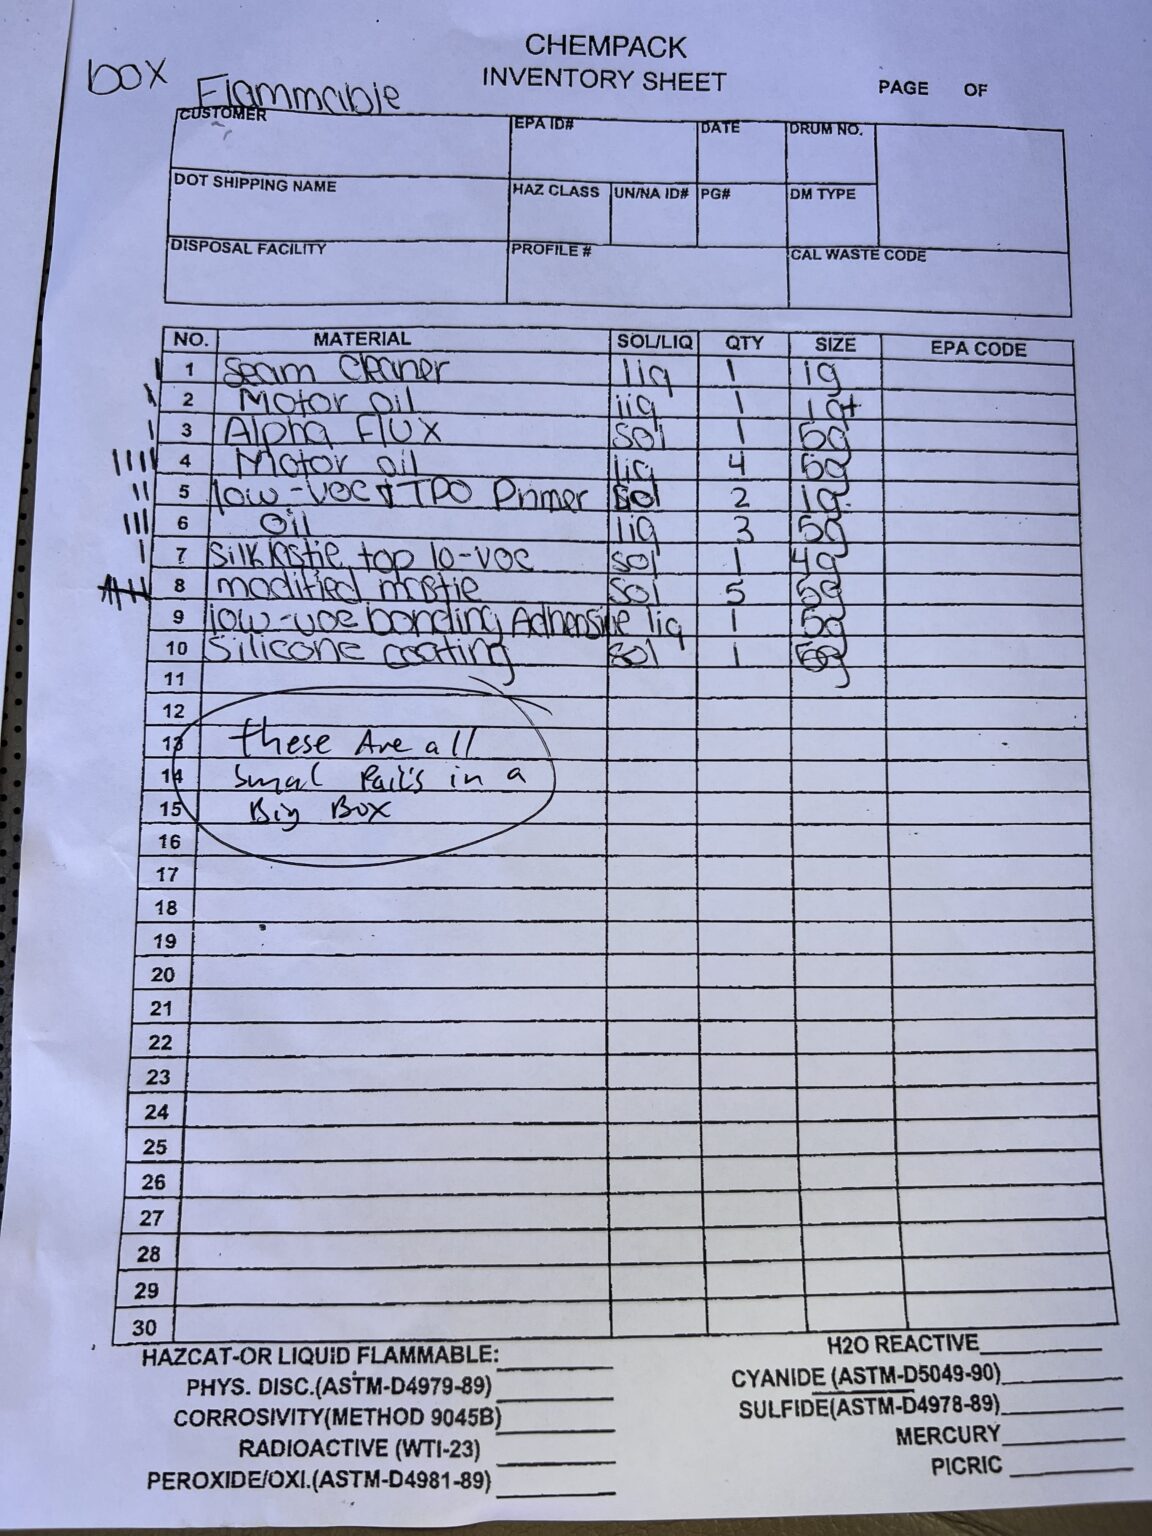 CHEMPACK
INVENTORY SHEET
PAGE OF
box Flammable
CUSTOMER EPA ID# DATE DRUM NO.
DOT SHIPPING NAME HAZ CLASS UN/NA ID# PG# DM TYPE
DISPOSAL FACILITY PROFILE # CAL WASTE CODE
NO. MATERIAL SOL/LIQ QTY SIZE EPA CODE
1 Seam Cleaner liq 1 1g
2 Motor oil liq 1 1qt
3 Alpha Flux sol 1 5g
4 Motor oil liq 4 5g
5 low-voc & TPO Primer sol 2 1g
6 oil liq 3 5g
7 top lo-voc sol 1 4g
8 modified mastic sol 5 5g
9 low-voc bonding Adhensive liq 1 5g
10 Silicone coating sol 1 5g
11
12
13 these Are all
14 Smal Pail's in a
15 Big Box
16
17
18
19
20
21
22
23
24
25
26
27
28
29
30
HAZCAT-OR LIQUID FLAMMABLE: H2O REACTIVE
PHYS. DISC.(ASTM-D4979-89) CYANIDE (ASTM-D5049-90)
CORROSIVITY(METHOD 9045B) SULFIDE(ASTM-D4978-89)
RADIOACTIVE (WTI-23) MERCURY
PEROXIDE/OXI.(ASTM-D4981-89) PICRIC